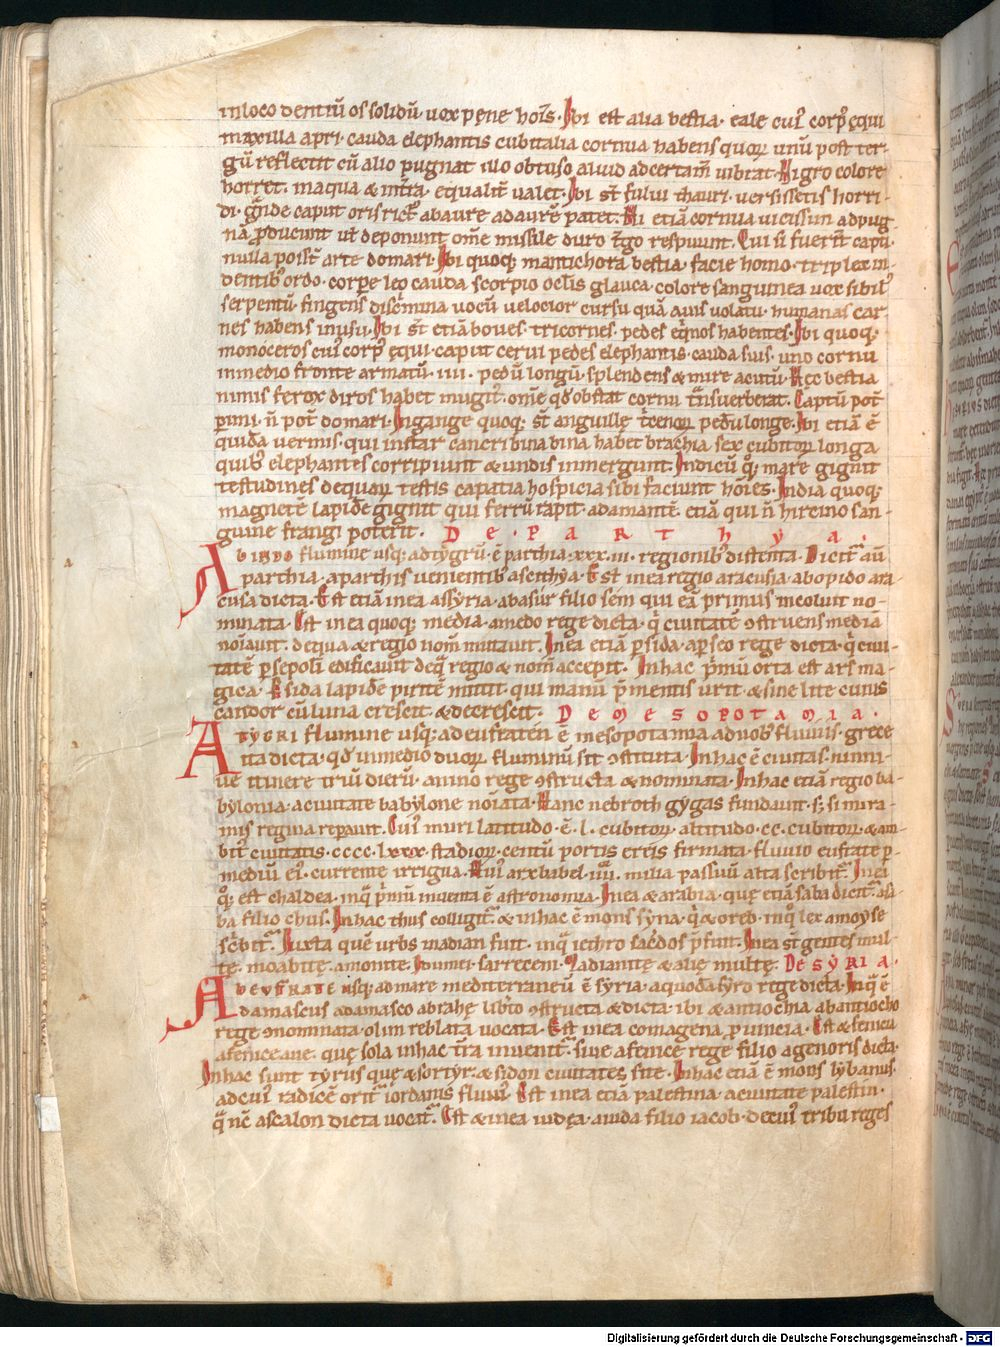 inloco dentiū os solidū · uox pene hoīs · Ibi est alia bestia · eale cuiꝰ corpꝰ ęqui
maxilla apri · cauda elephantis cubitalia cornua habens quoꝝ unū post ter-
gū reflectit cū alio pugnat illo obtuso aliud adcertam̄ uibrat · Nigro colore
horret · inaqua & int̄ra · equalit̄ ualet · Ibi st̄ fului thauri · uersis setis horri-
di · gͣnde caput oris rictꝰ abaure adaurē patet · Hi etiā cornua uicissim adpug-
nā producunt ut̄ deponunt om̄e missile duro t̄go respuunt · Qui si fuerīt capti
nulla poss̄t arte domari · Ibi quoqꝫ mantichora bestia · facie homo · triplex in
dentibꝰ ordo · corpe leo cauda scorpio oclis glauca · colore sanguinea uox sibilꝰ
serpentū · fingens discͥmina uocū uelocior cursu quā auis uolatu · humanas car
nes habens inusu · Ibi st̄ etiā boues · tricornes · pedes eqͥnos habentes · Ibi quoqꝫ
monoceros cuiꝰ corpꝰ ęqui · caput cerui pedes elephantis · cauda suis · uno cornu
inmedio fronte armatū · iiii · pedū longū · splendens & mire acutū · Hec bestia
nimis ferox diros habet mugitꝰ · om̄e qđ obstat cornu tͣnsuerberat · Captū pot̄
pimi · n̄ pot̄ domari · Ingange quoqꝫ st̄ anguille tͥcenoꝝ pedū longe · Ibi etiā ē
quidā uermis · qui instar cancri bina bina habet brachia sex cubitoꝝ longa
quibꝰ elephantes corripiunt & undis inmergunt · Indicū qꝫ mare gignit
testudines dequaꝝ testis capatia hospicia sibi faciunt hoīes · India quoqꝫ
magnetē lapidē gignit qui ferrū rapit · adamantē · etiā qui n̄ hircino san-
guine frangi poterit · De · Parthya ·
Abindo flumine usqꝫ ad tygrū · ē parthia · xxx · iii · regionibꝰ distenta · Dicitͬ aū
parthia · aparthis uenientibꝰ ascithya · Est inea regio aracusia · abopido ara
cusa dicta · Est etiā inea assyria · abasur filio sem qui eā primus incoluit no-
minata · Est inea quoqꝫ media · amedo rege dicta · qͥ ciuitatē ꝯstruens media
noīauit · dequa & regio nom̄ mutauit · Inea etiā ꝑsida · apseo rege dicta · qͥ ciui-
tatē ꝑsepoli edificauit deqͣ regio & nom̄ accepit · Inhac pͥmū orta est ars ma
gica · Psida lapidē piritē mittit · qui manū pͥmentis urit & sine lite cuius
candor cū luna crescit · & decrescit · De mesopotamia ·
Atygri flumine usqꝫ ad eufraten ē mesopotamia · aduobꝰ fluuiis · grece
ita dicta · qđ inmedio duoꝝ fluminū sit ꝯstituta · Inhac ē ciuitas · ninni-
ue itinere triū dierū · anino rege ꝯstructa & nominata · Inhac etiā regio ba-
bylonia · aciuitate babylone noīata · Hanc nebroth gygas fundauit · sꝫ simira-
mis regina repauit · Cuiꝰ muri latitudo · ē · l · cubitoꝝ · altitudo · cc · cubitoꝝ · & am-
bitꝰ ciuitatis · cccc · lxxx · stadioꝝ · centū portis ereis firmata · fluuio eufrate ꝑ
mediū eiꝰ currente irrigua · Huiꝰ arx babel · iiii · milia passuū alta scribitͬ · Inea
qꝫ est chaldea · inqͣ pͥmū inuenta ē astronomia · Inea & arabia · quę etiā saba dicitͬ asa
ba filio chus · Inhac thus colligitͬ & inhac ē mons syna · qͥ & oreb · inqͦ lex amoyse
scͥbitͬ · Iuxta quē urbs madian fuit · inqͣ iethro sac̄dos pfuit · Inea st̄ gentes mul-
tę · moabitę · amonitę · Idumei · sarreceni · Madianitę & alię multę · De syria ·
Aeufrate usqꝫ ad mare mediterraneū ē syria · aquodā syro rege dicta · Inqͣ ē
damascus adamasco abrahę libͭto ꝯstructa & dicta · ibi & antiochia abantiocho
rege ꝯnominata · olim reblata uocata · Est inea comagena prouincia · Est & fenicia
afenice aue · quę sola inhac t̄ra inuenitͬ · siue afenice rege filio agenoris dicta ·
Inhac sunt tyrus quę & sor tyr & sidon ciuitates site · Inhac etiā ē mons lybanus
adcuiꝰ radicē oritͬ iordanis fluuiꝰ · Est inea etiā palestina · aciuitate palestin ·
qͣ nc̄ ascalon dicta uocatͬ · Est & inea iudęa · aiuda filio iacob · decuiꝰ tribu reges
Digitalisierung gefördert durch die Deutsche Forschungsgemeinschaft - DFG